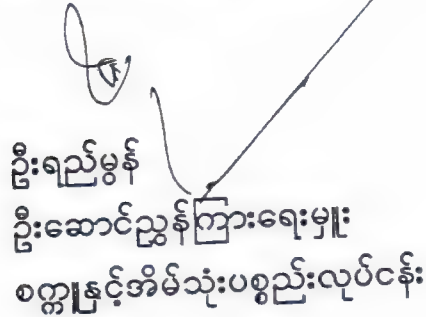 ဦးရည်မွန်
ဦးဆောင်ညွှန်ကြားရေးမှူး
စက္ကူနှင့်အိမ်သုံးပစ္စည်းလုပ်ငန်း